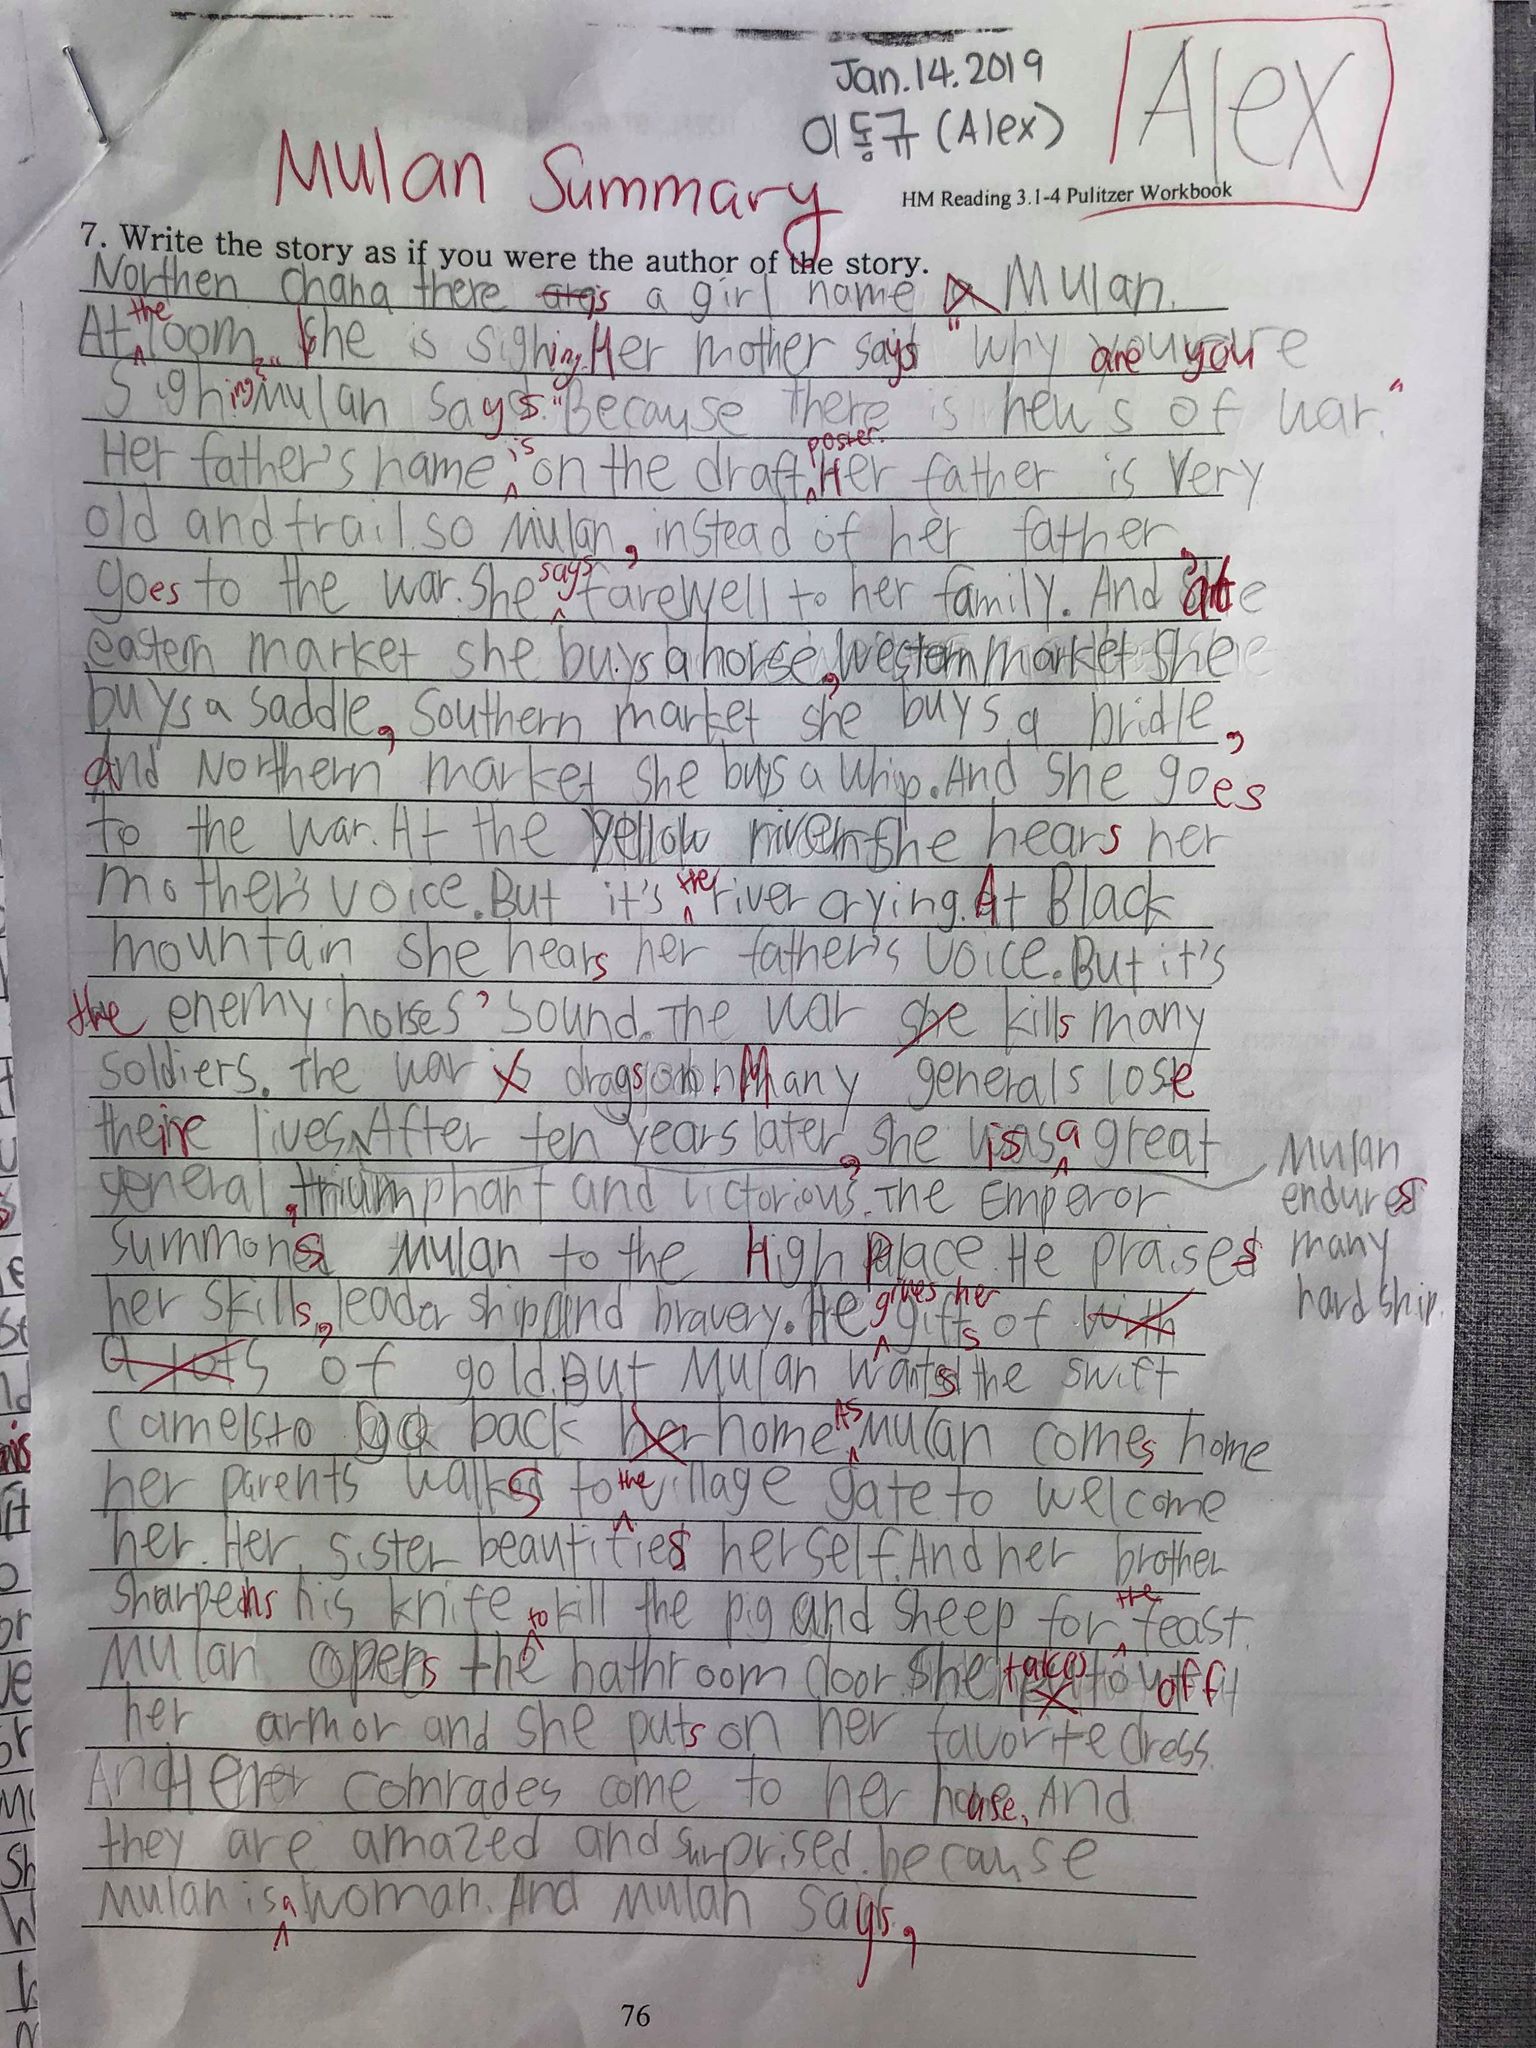 Jan.14.2019
이동규 (Alex)
Alex
Mulan Summary
HM Reading 3.1-4 Pulitzer Workbook
7. Write the story as if you were the author of the story.
Northen Chana there is a girl name Mulan.
At the loom, she is sighing. Her mother says "Why are you
sighing?" Mulan says. "Because there is news of war."
Her father's name is on the draft poster. Her father is very
old and frail. so Mulan, instead of her father,
goes to the war. She says farewell to her family. And at
eastern market she buys a horse, western market she
buys a saddle, Southern market she buys a bridle,
and Northern market she buys a whip. And she goes
to the war. At the Yellow river she hears her
mother's voice. But it's the river crying. At Black
mountain she hears her father's voice. But it's
the enemy horses' sound. The war kills many
soldiers. The war drags on. Many generals lose
their lives. After ten years later, she is a great
general, triumphant and victorious. The Emperor
summons Mulan to the High Palace. He praises
her skills, leadership and bravery. He gives her gifts of
of gold. But Mulan wants the swift
camels to go back home. As Mulan comes home
her parents walks to the village gate to welcome
her. Her sister beautifies herself. And her brother
sharpens his knife to kill the pig and sheep for the feast.
Mulan opens the bathroom door. She takes off
her armor and she puts on her favorite dress.
And Her comrades come to her house. And
they are amazed and surprised. because
Mulan is a woman. And Mulan says,
Mulan
endures
many
hard ship.
76